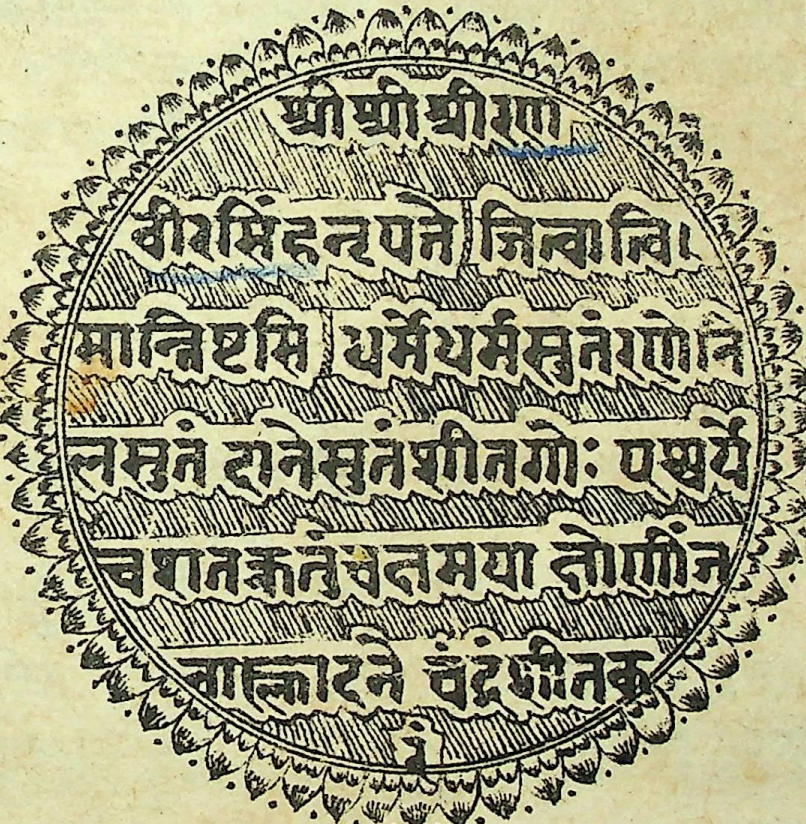 श्रीश्रीश्रीरण
वीरसिंहनृपते जित्वात्वि।
मान्निष्टसि धर्मेधर्मसुतंरणेनि
लसुतं दानेसुतंशीतगोः पश्चर्ये
चशतक्रतुंचक्षमया क्षोणींज
नाह्लादने चंद्रंशीतक
रं